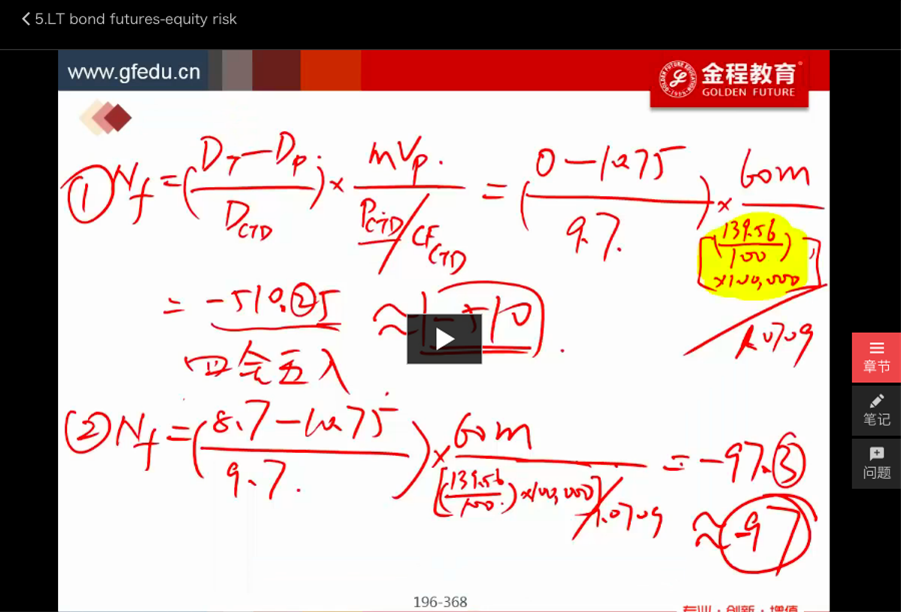 5.LT bond futures-equity risk
www.gfedu.cn
金程教育
GOLDEN FUTURE
① Nf = (DT - DP / DCTD) × mVp. / PCTD / CFCTD = (0 - 10.75 / 9.7.) × 60m / [(139.56 / 100) × 100,000] / 1.0709
= -510.25 ≈ -510.
四舍五入
② Nf = (8.7 - 10.75 / 9.7.) × 60m / [(139.56 / 100.) × 100,000] / 1.0709 = -97.3
≈ -97
章节
笔记
问题
196-368
专业·创新·增值